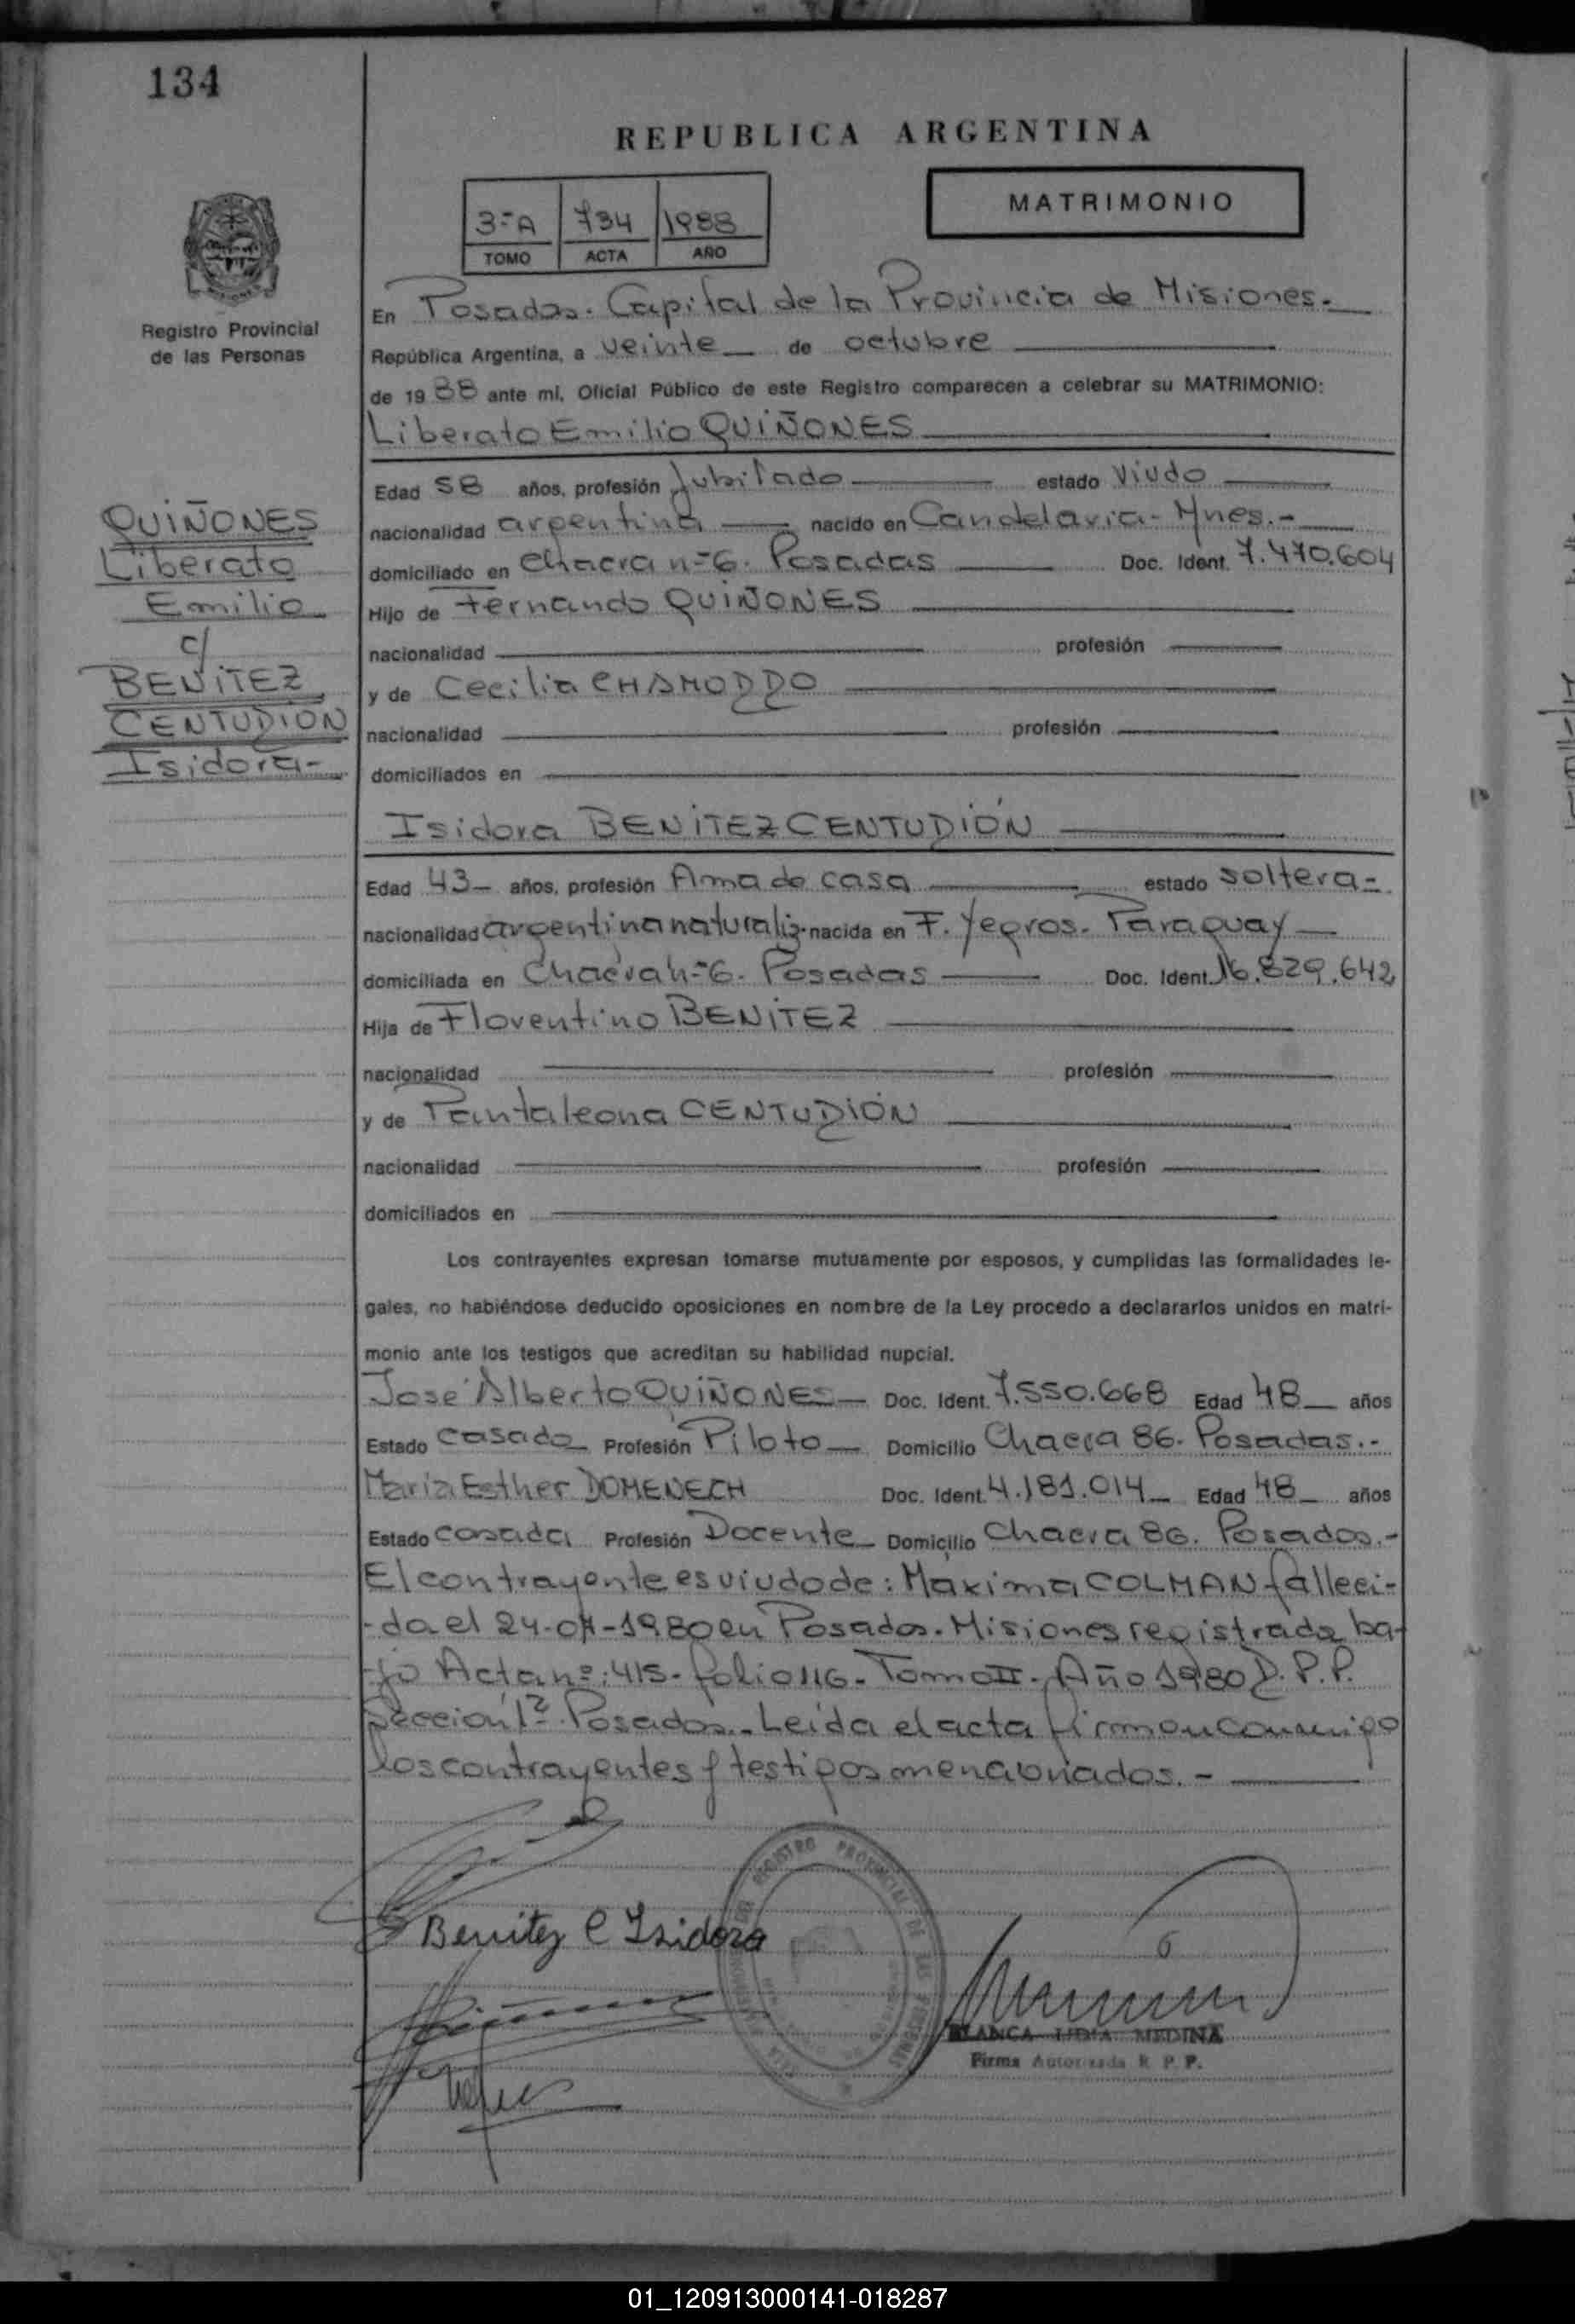 134
REPUBLICA ARGENTINA
MATRIMONIO
3-A 734 1988
TOMO ACTA AÑO
Registro Provincial
de las Personas
En Posadas. Capital de la Provincia de Misiones.-
República Argentina, a veinte de octubre
de 1988 ante mi, Oficial Público de este Registro comparecen a celebrar su MATRIMONIO:
Liberato Emilio QUIÑONES
Edad 58 años, profesión Jubilado estado Viudo
nacionalidad argentina nacido en Candelaria- Mnes.-
domiciliado en chacra n=6. Posadas Doc. Ident. 7.470.604
Hijo de Fernando QUIÑONES
nacionalidad profesión
y de Cecilia CHAMORRO
nacionalidad profesión
domiciliados en
QUIÑONES
Liberato
Emilio
c/
BENITEZ
CENTUDIÓN
Isidora-
Isidora BENITEZ CENTUDIÓN
Edad 43- años, profesión Ama de casa estado soltera-
nacionalidad argentina naturaliz. nacida en F. Yegros. Paraguay
domiciliada en Chacra n=6. Posadas Doc. Ident. 16.829.642
Hija de Florentino BENITEZ
nacionalidad profesión
y de Pantaleona CENTUDIÓN
nacionalidad profesión
domiciliados en
Los contrayentes expresan tomarse mutuamente por esposos, y cumplidas las formalidades le-
gales, no habiéndose deducido oposiciones en nombre de la Ley procedo a declararlos unidos en matri-
monio ante los testigos que acreditan su habilidad nupcial.
José Alberto QUIÑONES- Doc. Ident. 7.550.668 Edad 48 años
Estado casado Profesión Piloto Domicilio Chacra 86. Posadas.-
Maria Esther DOMENECH Doc. Ident. 4.181.014 Edad 48 años
Estado casada Profesión Docente Domicilio Chacra 86. Posadas.-
El contrayente es viudo de: Maxima COLMAN falleci-
-da el 24-04-1980 en Posadas. Misiones registrada ba-
-jo Acta nº: 415- folio 116- Tomo II- Año 1980 D.P.P.
Sección 1ª Posadas.- Leida el acta firman conmigo
los contrayentes y testigos mencionados.-
Benitez C Isidora
REGISTRO PROVINCIAL DE LAS PERSONAS
BLANCA LIDIA MEDINA
Firma Autorizada R. P. P.
01_120913000141-018287